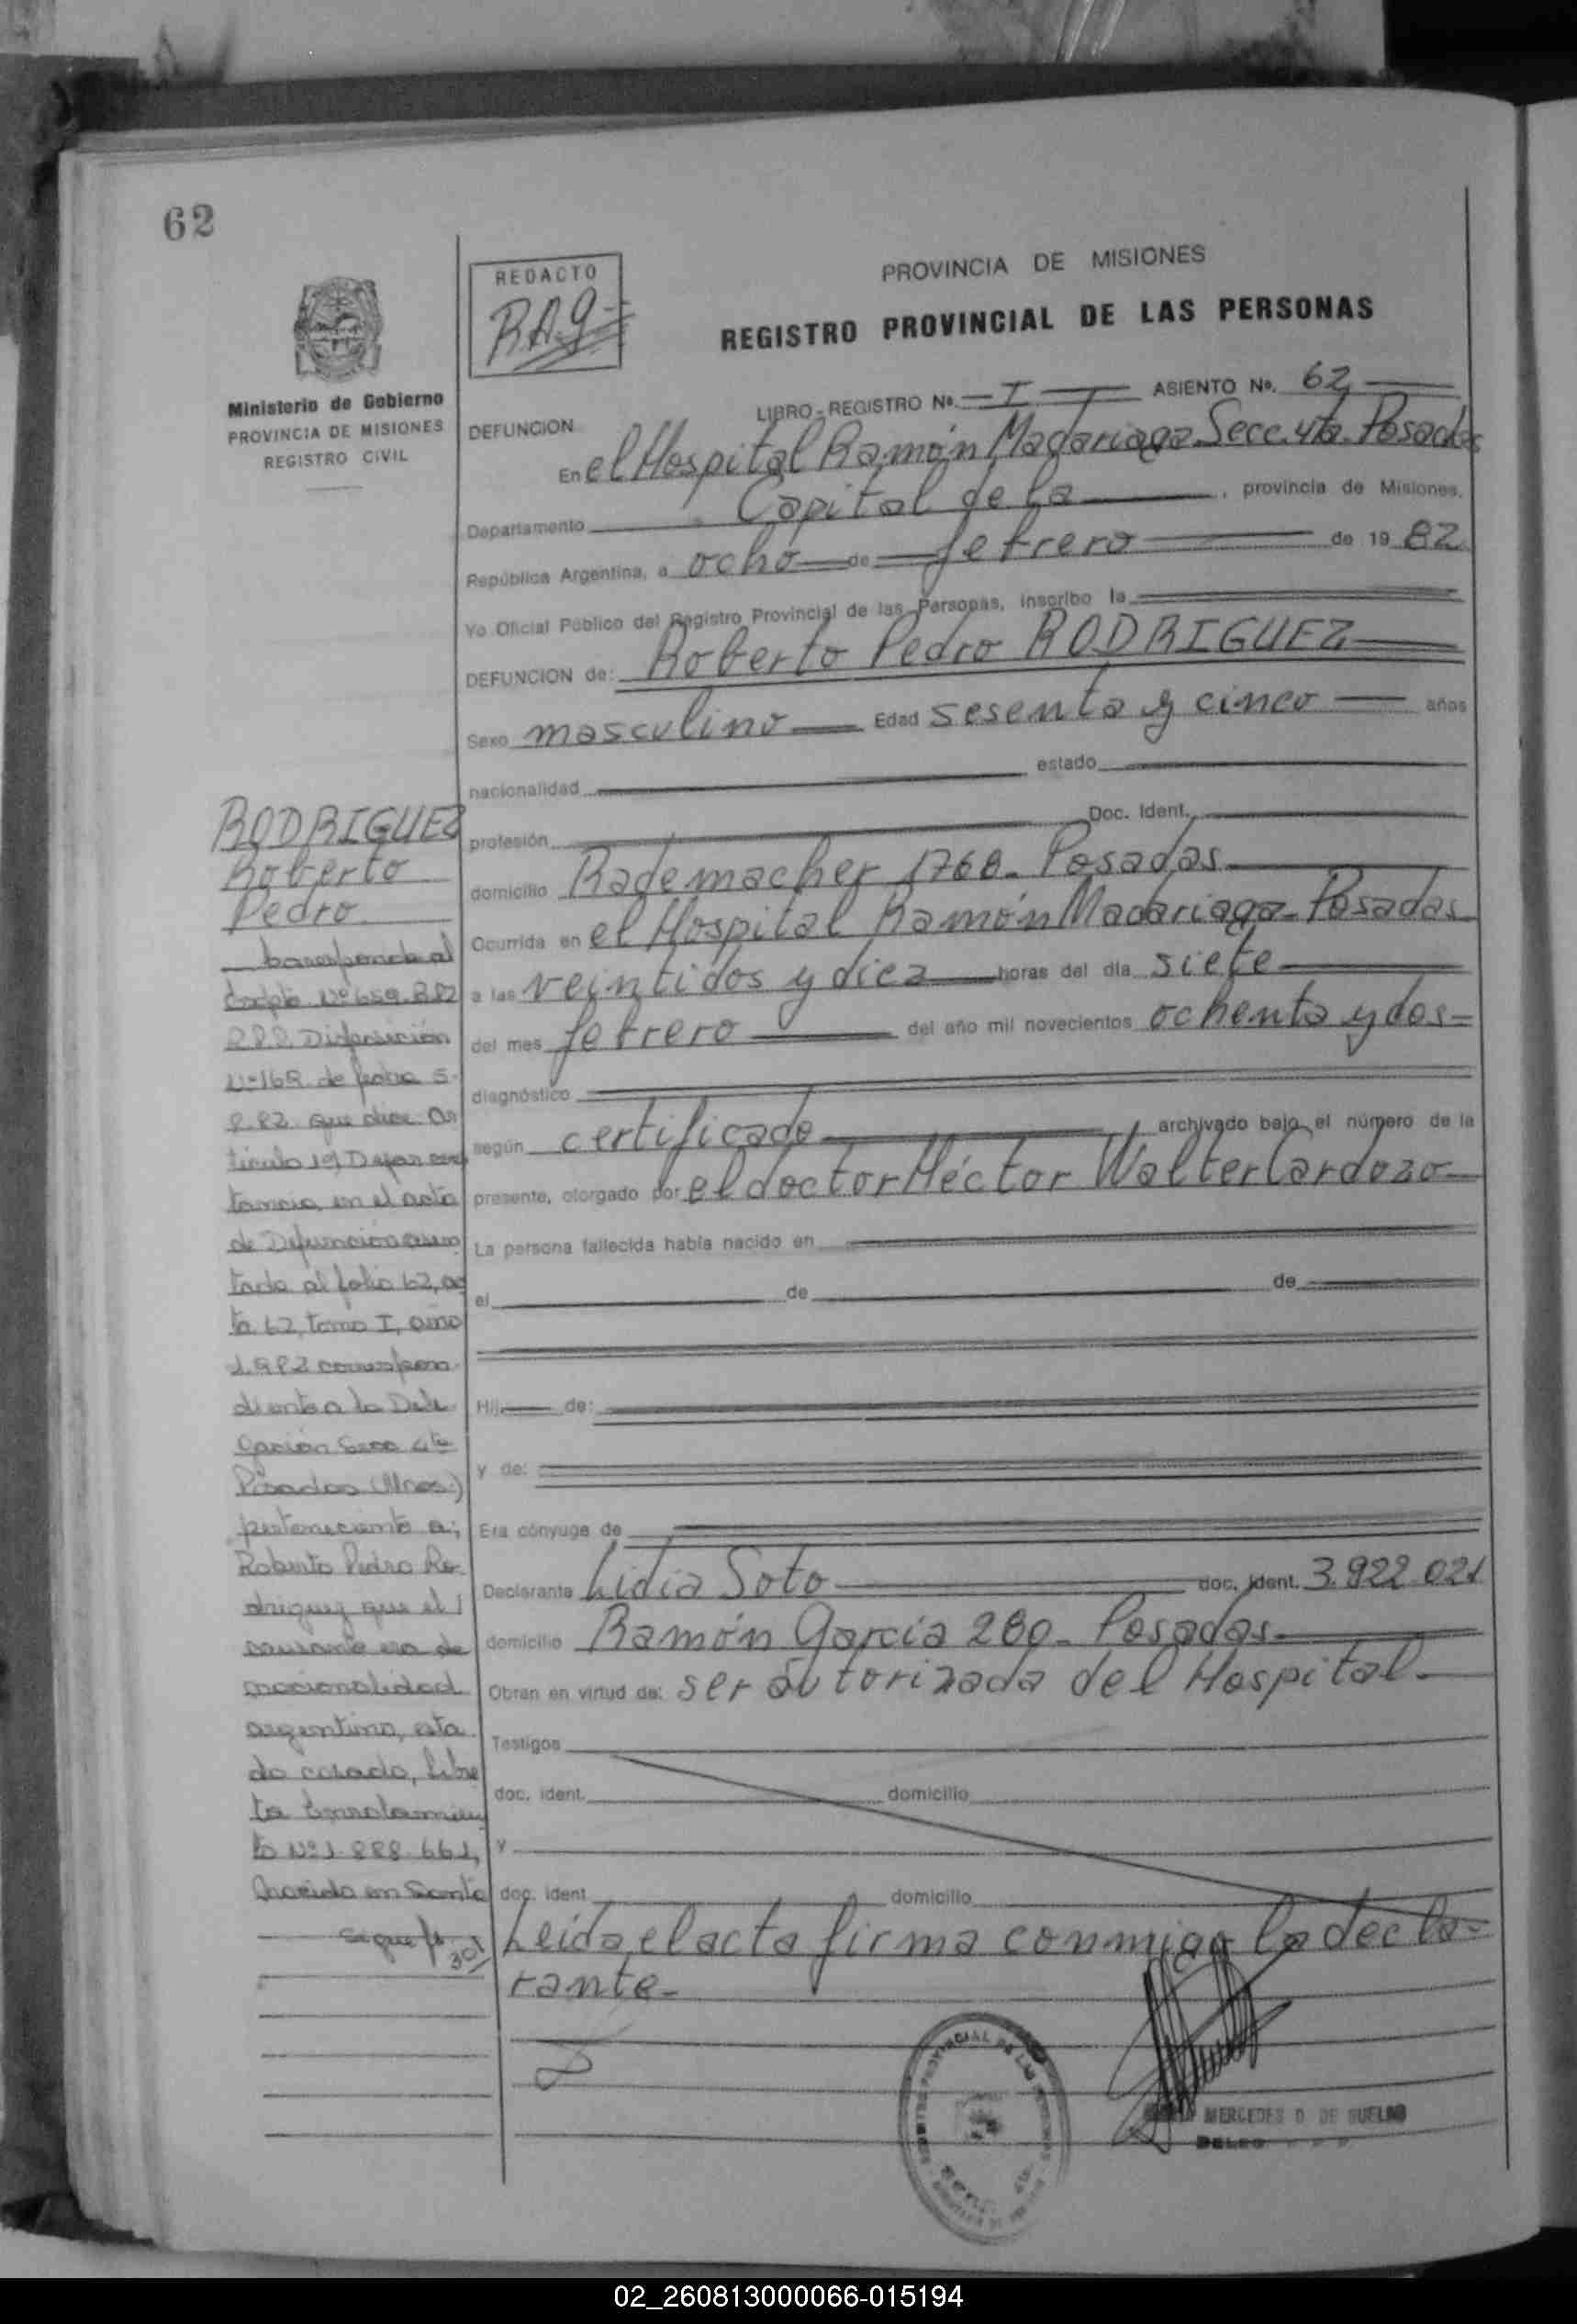 62
REDACTO
R.A.G.
Ministerio de Gobierno
PROVINCIA DE MISIONES
REGISTRO CIVIL
PROVINCIA DE MISIONES
REGISTRO PROVINCIAL DE LAS PERSONAS
LIBRO-REGISTRO Nº. I ASIENTO Nº. 62
DEFUNCION
En el Hospital Ramón Madariaga Secc. 4ta. Posadas
Departamento Capital de la , provincia de Misiones,
República Argentina, a ocho de febrero de 19 82
Yo Oficial Público del Registro Provincial de las Personas, inscribo la
DEFUNCION de: Roberto Pedro RODRIGUEZ
Sexo masculino Edad sesenta y cinco años
nacionalidad estado
profesión Doc. Ident.
domicilio Rademacher 1768- Posadas
Ocurrida en el Hospital Ramón Madariaga- Posadas
a las veintidos y diez horas del día siete
del mes febrero del año mil novecientos ochenta y dos-
diagnóstico
según certificado archivado bajo el número de la
presente, otorgado por el doctor Héctor Walter Cardozo
La persona fallecida había nacido en
el de de
Hij de:
y de:
Era cónyuge de
Declarante Lidia Soto doc. ident. 3.922.021
domicilio Ramón García 280- Posadas-
Obran en virtud de: ser autorizada del Hospital-
Testigos
doc. ident. domicilio
y
doc. ident. domicilio
Leída el acta firma conmigo la decla-
rante-
RODRIGUEZ
Roberto
Pedro
corresponde al
Nº 659.
Disposición
Nº 168 de fecha 5.
8.82 que dice Ar
tículo 1º) Dejar cons
tancia en el acta
de Defunción asen
tada al folio 62, ac
ta 62, tomo I, año
1.982 correspon
diente a la Dele
gación Secc 4ta
Posadas (Mnes.)
perteneciente a;
Roberto Pedro Ro
driguez que el
causante era de
nacionalidad
argentino, esta
do casado, Libre
ta Enrolamien
to Nº 1.888.661,
nacido en Santa
sigue fs 301
MERCEDES D. DE
02_260813000066-015194